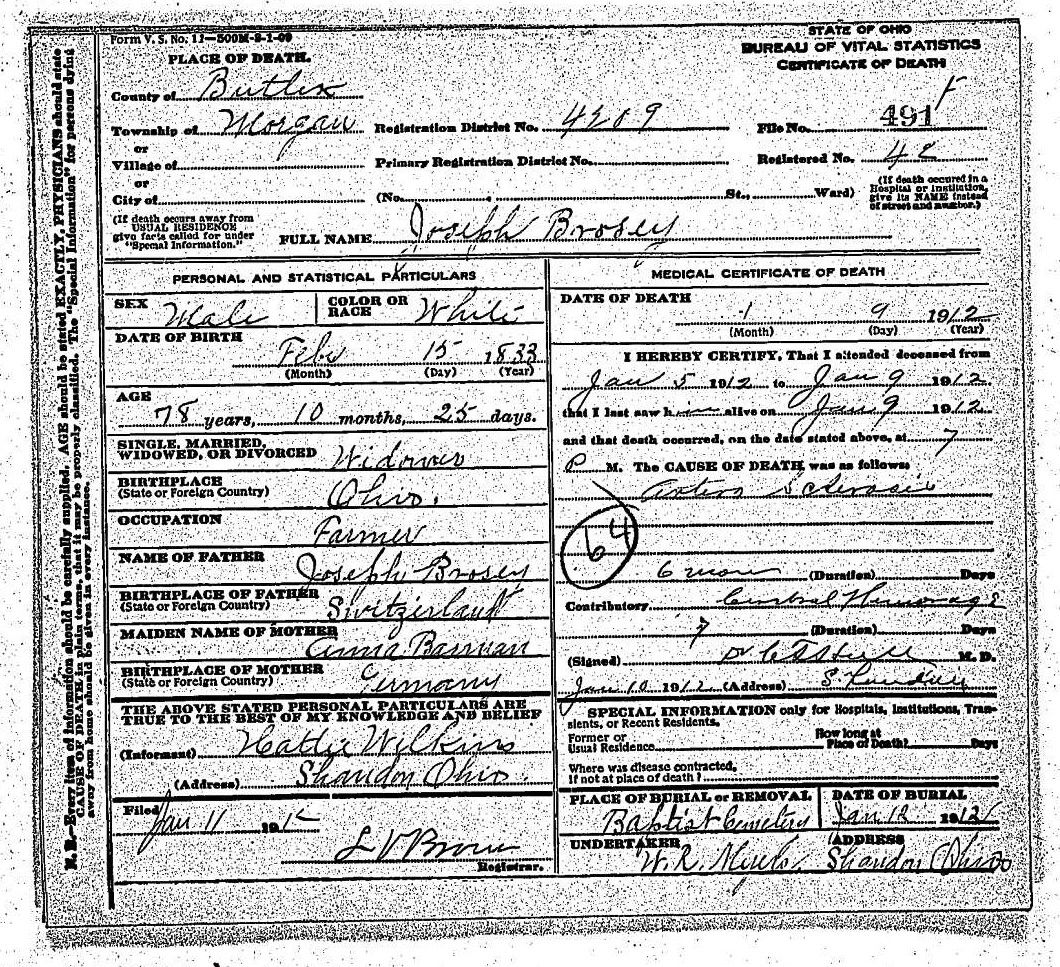 Form V. S. No. 11—500M-8-1-09
PLACE OF DEATH.
County of Butler
Township of Morgan
or
Village of
or
City of
(If death occurs away from
USUAL RESIDENCE
give facts called for under
"Special Information.")
STATE OF OHIO
BUREAU OF VITAL STATISTICS
CERTIFICATE OF DEATH
Registration District No. 4209
File No. 491
Primary Registration District No.
Registered No.
(No. , St., Ward)
(If death occured in a
Hospital or Institution,
give its NAME instead
of street and number.)
FULL NAME Joseph Brosey
PERSONAL AND STATISTICAL PARTICULARS
SEX Male
COLOR OR
RACE White
DATE OF BIRTH
Feb 15 1833
(Month) (Day) (Year)
AGE
78 years, 10 months, 25 days.
SINGLE, MARRIED,
WIDOWED, OR DIVORCED Widower
BIRTHPLACE
(State or Foreign Country) Ohio.
OCCUPATION
Farmer
NAME OF FATHER
Joseph Brosey
BIRTHPLACE OF FATHER
(State or Foreign Country) Switzerland
MAIDEN NAME OF MOTHER
Anna Barman
BIRTHPLACE OF MOTHER
(State or Foreign Country) Germany
THE ABOVE STATED PERSONAL PARTICULARS ARE
TRUE TO THE BEST OF MY KNOWLEDGE AND BELIEF
(Informant) Hattie Wilkins
(Address) Shandon Ohio.
Filed
Jan 11 191
L V Brown
Registrar.
MEDICAL CERTIFICATE OF DEATH
DATE OF DEATH
1 9 1912
(Month) (Day) (Year)
I HEREBY CERTIFY, That I attended deceased from
Jan 5 1912 to Jan 9 1912
that I last saw him alive on Jan 9 1912
and that death occurred, on the date stated above, at 7
P M. The CAUSE OF DEATH was as follows:
Arterio Sclerosis
64
6 mon (Duration) Days
Contributory Hemorage
7 (Duration) Days
(Signed) M. D.
Jan 10 1912 (Address)
SPECIAL INFORMATION only for Hospitals, Institutions, Tran-
sients, or Recent Residents.
Former or
Usual Residence
How long at
Place of Death? Days
Where was disease contracted,
If not at place of death?
PLACE OF BURIAL or REMOVAL
Baptist Cemetery
DATE OF BURIAL
Jan 12 1912
UNDERTAKER
W. R.
ADDRESS
Shandon Ohio
N. B.—Every item of information should be carefully supplied. AGE should be stated EXACTLY, PHYSICIANS should state
CAUSE OF DEATH in plain terms, that it may be properly classified. The "Special Information" for persons dying
away from home should be given in every instance.